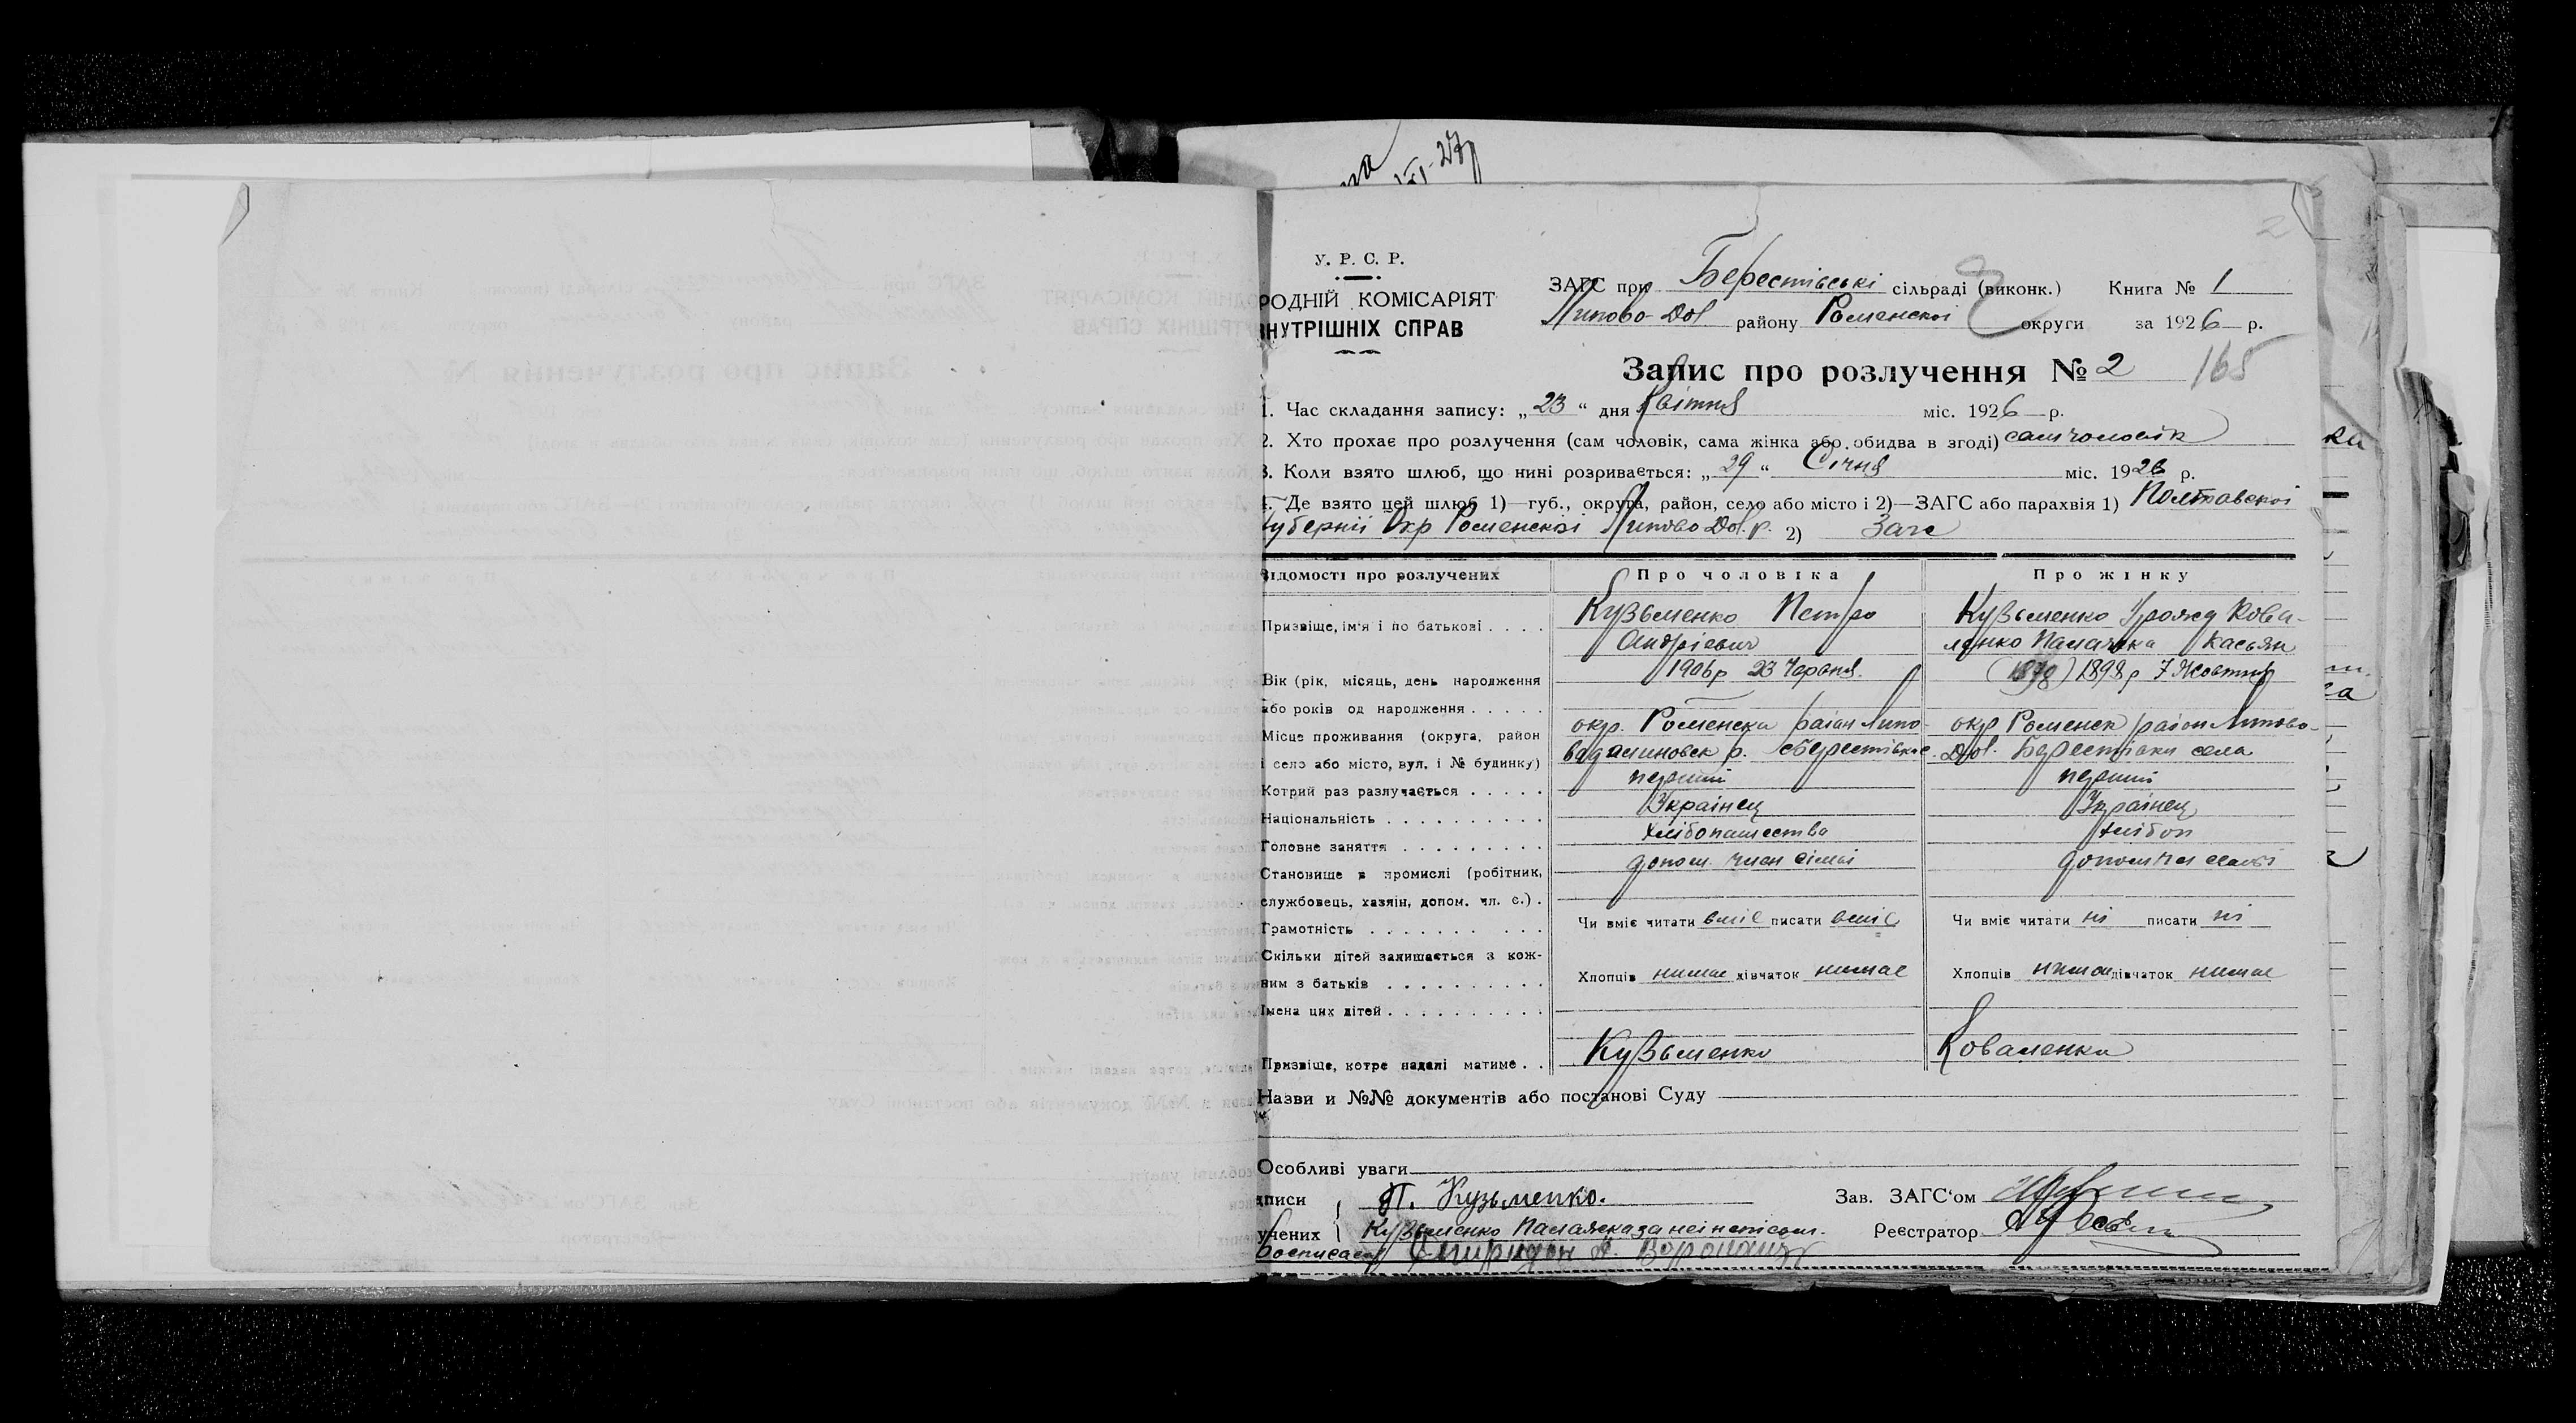 2
У. Р. С. Р.
РОДНІЙ КОМІСАРІЯТ
НУТРІШНІХ СПРАВ
ЗАГС при Берестівські сільраді (виконк.) Книга № 1
Липово-Дол. району Роменскоі округи за 1926 р.
Запис про розлучення № 2 165
1. Час складання запису: „23“ дня Квітня міс. 1926 р.
2. Хто прохає про розлучення (сам чоловік, сама жінка або обидва в згоді) сам чоловік
3. Коли взято шлюб, що нині розривається: „29“ Січня міс. 1926 р.
4. Де взято цей шлюб 1)—губ., округа, район, село або місто і 2)—ЗАГС або парахвія 1) Полтавскоі
губернії Окр Роменскоі Липово Дол. р. 2) Загс
Відомості про розлучених Про чоловіка Про жінку
Призвіще, ім'я і по батькові . . . . Кузьменко Петро Кузьменко Урожд Кова-
Андріевич ленко Паланка Касьян
Вік (рік, місяць, день народження 1906р 23 Червня. 1898р 7 Жовтня
або років од народження . . . . .
Місце проживання (округа, район окр. Роменска район Липо- окр Роменск район Липово-
і село або місто, вул. і № будинку) р. Дол. Берестівки села
Котрий раз разлучається . . . . . перший перший
Національність . . . . . . . . . . Украінец Украінец
Головне заняття . . . . . . . . . хлібопашество хлібоп
Становище в промислі (робітник, допом. член сімьі допом
службовець, хазяін, допом. чл. с.) .
Грамотність . . . . . . . . . . Чи вміє читати вміє писати вміє Чи вміє читати ні писати ні
Скільки дітей залишається з кож-
ним з батьків . . . . . . . . . . Хлопців нимае дівчаток нимае Хлопців нимае дівчаток нимае
Імена цих дітей . . . . . . . . . .
Призвіще, котре надалі матиме . . Кузьменко Коваленка
Назви и №№ документів або постанові Суду
Особливі уваги
дписи П. Кузьменко. Зав. ЗАГС'ом
учених Кузьменко за неі неписьм. Реєстратор
росписася Спиридон